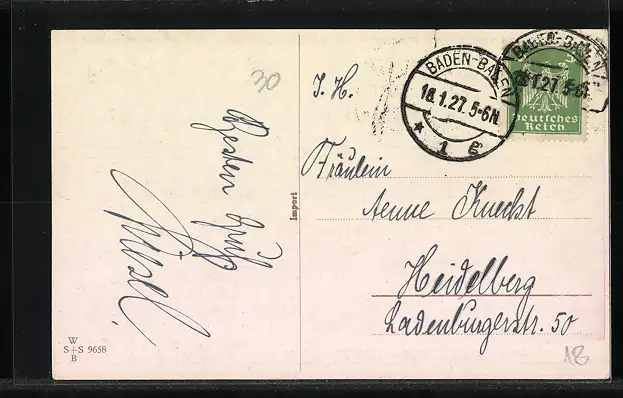 30
Besten Gruß
Gisel.
Import
W
S+S 9658
B
BADEN-BADEN
18.1.27. 5-6N.
* 1 g
BADEN-BADEN
18.1.27. 5-6N
5
Deutsches
Reich
I. H.
Fräulein
Aenne Knecht
Heidelberg
Ladenburgerstr. 50
18